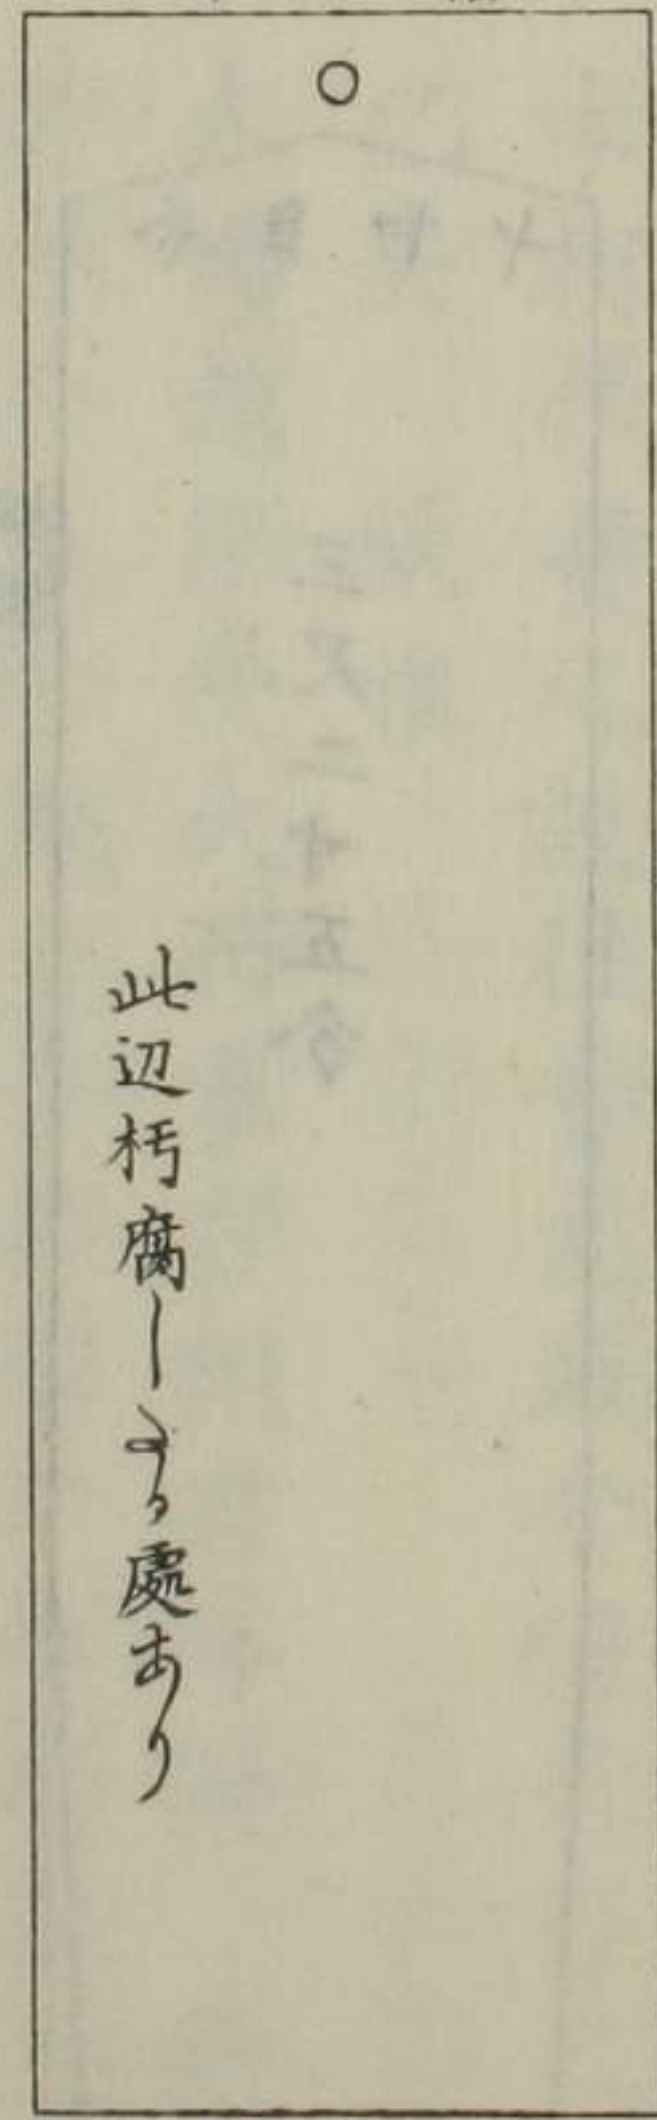 此辺朽腐したる處あり